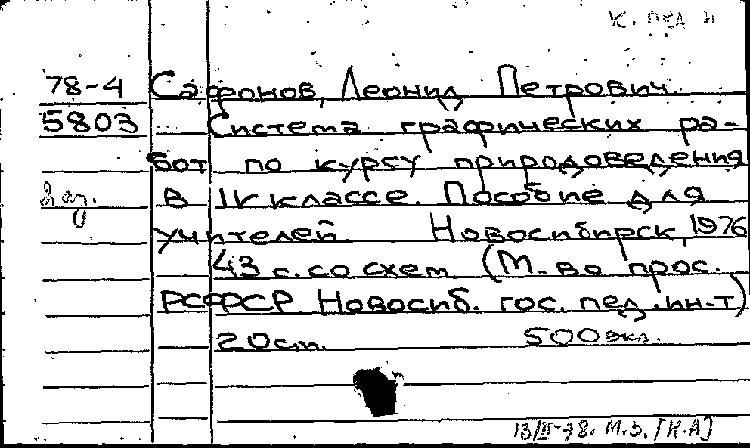 К. пед
78-4 Сафонов, Леонид Петрович.
5803 Система графических ра-
бот по курсу природоведения
в IV классе. Пособие для
учителей Новосибирск, 1976
43 с. со схем (М-во прос.
РСФСР Новосиб. гос. пед. ин-т)
20 см. 500 экз.
13/II-78. М.З. [К.А]